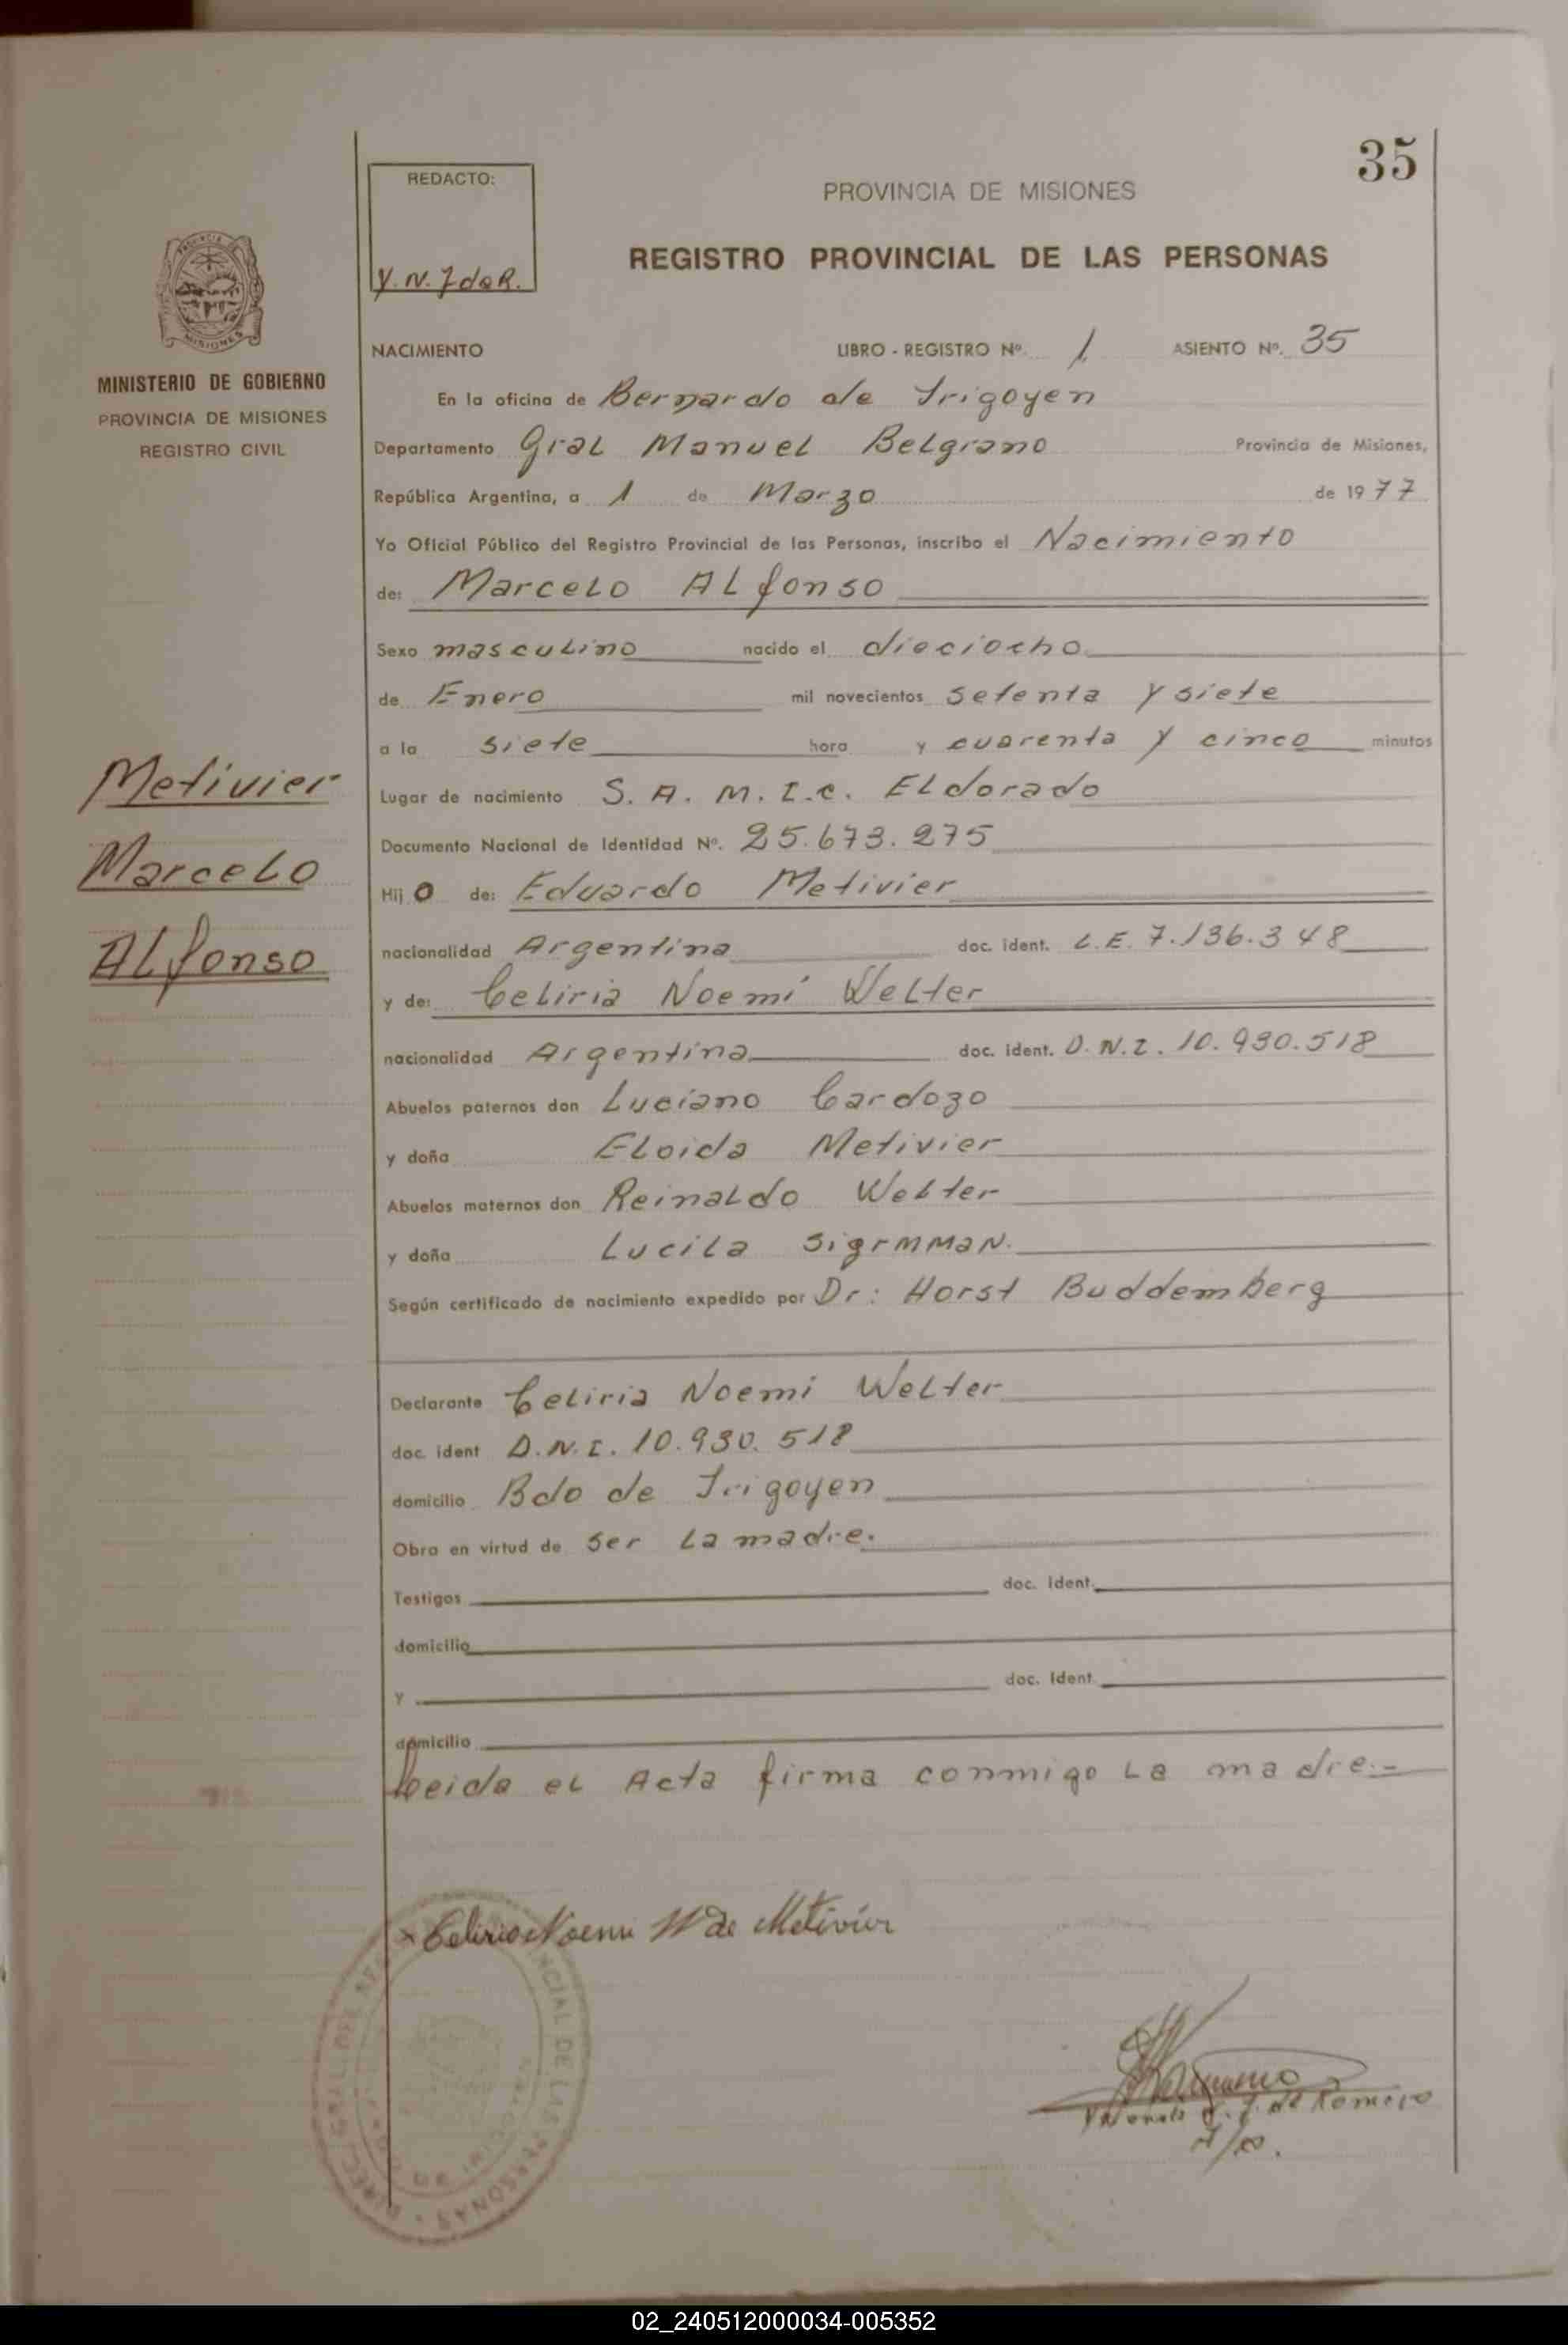 35
REDACTO:
Y. N. J de R.
PROVINCIA DE MISIONES
REGISTRO PROVINCIAL DE LAS PERSONAS
MINISTERIO DE GOBIERNO
PROVINCIA DE MISIONES
REGISTRO CIVIL
Metivier
Marcelo
Alfonso
NACIMIENTO LIBRO - REGISTRO Nº. 1 ASIENTO Nº. 35
En la oficina de Bernardo de Irigoyen
Departamento Gral Manuel Belgrano Provincia de Misiones,
República Argentina, a 1 de Marzo de 1977
Yo Oficial Público del Registro Provincial de las Personas, inscribo el Nacimiento
de: Marcelo Alfonso
Sexo masculino nacido el dieciocho
de Enero mil novecientos setenta y siete
a la siete hora y cuarenta y cinco minutos
Lugar de nacimiento S. A. M. I. C. Eldorado
Documento Nacional de Identidad Nº. 25.673.275
Hijo de: Eduardo Metivier
nacionalidad Argentina doc. ident. L.E. 7.136.348
y de: Celiria Noemí Welter
nacionalidad Argentina doc. ident. D.N.I. 10.930.518
Abuelos paternos don Luciano Cardozo
y doña Eloida Metivier
Abuelos maternos don Reinaldo Welter
y doña Lucila Sigrmman.
Según certificado de nacimiento expedido por Dr: Horst Buddemberg
Declarante Celiria Noemi Welter
doc. ident D.N.I. 10.930.518
domicilio Bdo de Irigoyen
Obra en virtud de ser la madre.
Testigos doc. ident.
domicilio
y doc. ident.
domicilio
Leida el Acta firma conmigo la madre.-
x Celiria Noemi W de Metivier
de Romero
02_240512000034-005352